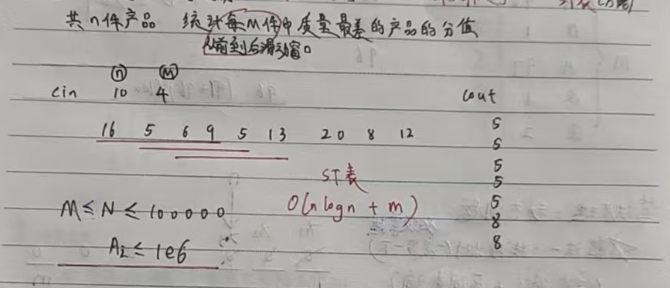 共n件产品 统计每M件中质量最差的产品的分值
从前到后滑动窗。
n M
cin 10 4 cout
16 5 6 9 5 13 20 8 12
5
5
5
5
5
8
8
ST表
O(n logn + m)
M ≤ N ≤ 100000
Ai ≤ 1e6